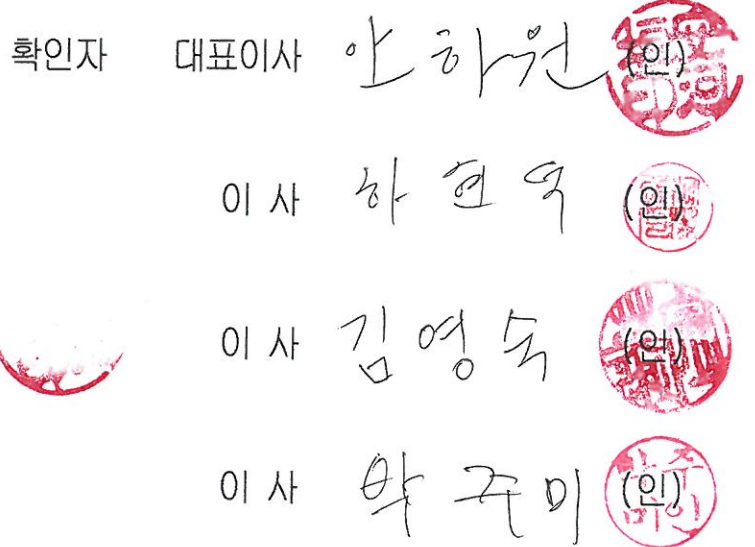 확인자 대표이사 안하원 (인)
이 사 하현욱 (인)
이 사 김영숙 (인)
이 사 박주미 (인)